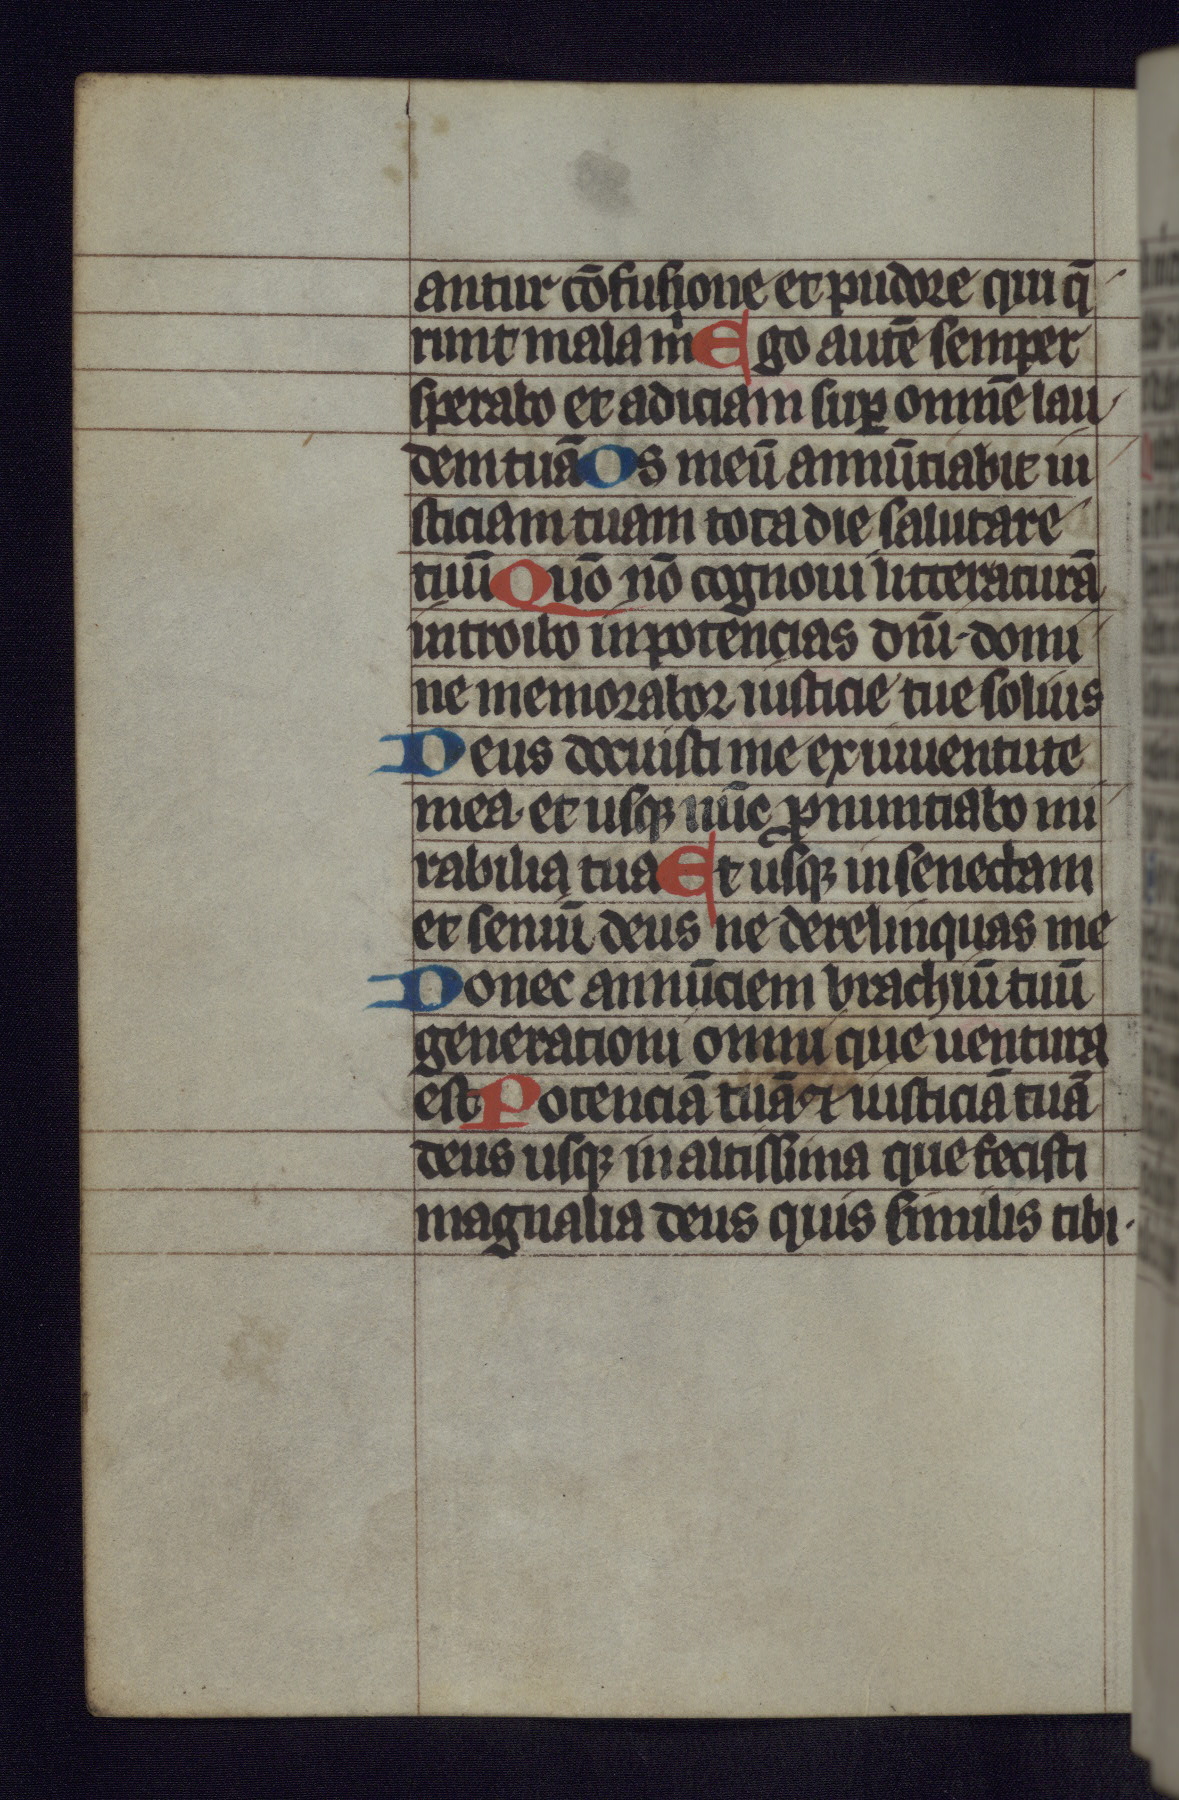 antur cōfusione et pudore qui q̄
runt mala mͥ Ego autē semper
sperabo et adiciam suꝑ omnē lau
dem tuā Os meū annūtiabit iu
sticiam tuam tota die salutare
tuū Quō nō cognoui litteraturā
introibo in potencias dn̄i· domi
ne memorabor iusticie tue solius
Deus docuisti me ex iuuentute
mea· et usqꝫ nūc ꝓnuntiabo mi
rabilia tua Et usqꝫ in senectam
et seniū deus ne derelinquas me
Donec annūciem brachiū tuū
generationi omni que uentura
est Potenciā tuā ⁊ iusticiā tuā
deus usqꝫ in altissima que fecisti
magnalia deus quis similis tibi·